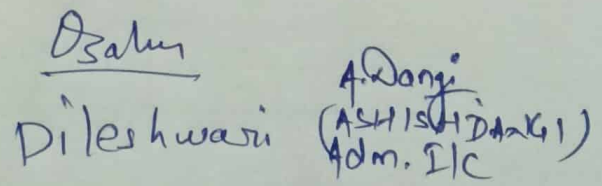 Dsahu
Dileshwari
A.Dangi
(ASHISH DANGI)
Adm. I/C